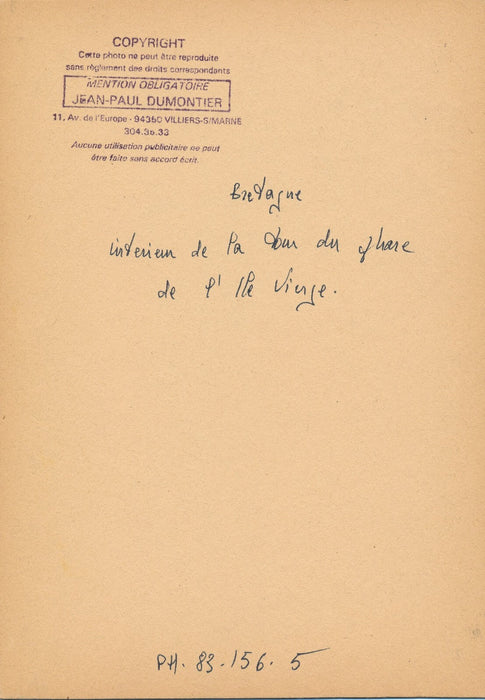 COPYRIGHT
Cette photo ne peut être reproduite
sans règlement des droits correspondants
MENTION OBLIGATOIRE
JEAN-PAUL DUMONTIER
11, Av. de l'Europe - 94350 VILLIERS-S/MARNE
304.35.33
Aucune utilisation publicitaire ne peut
être faite sans accord écrit.
Bretagne
interieur de la tour du phare
de l' Ile Vierge.
PH. 83.156.5